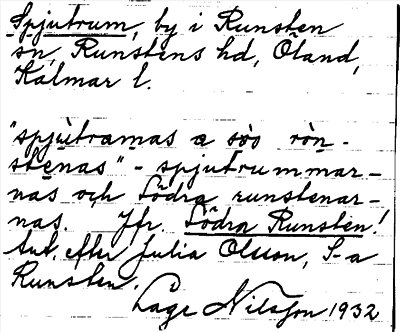 Spjutrum, by i Runsten
sn, Runstens hd, Öland,
Kalmar l.
"spjùtramas a söo ròn-
stenas" - spjutrummar-
nas och Södra runstenar-
nas. Jfr. Södra Runsten!
Ant. efter Julia Olsson, S-a
Runsten.
Lage Nilsson 1932